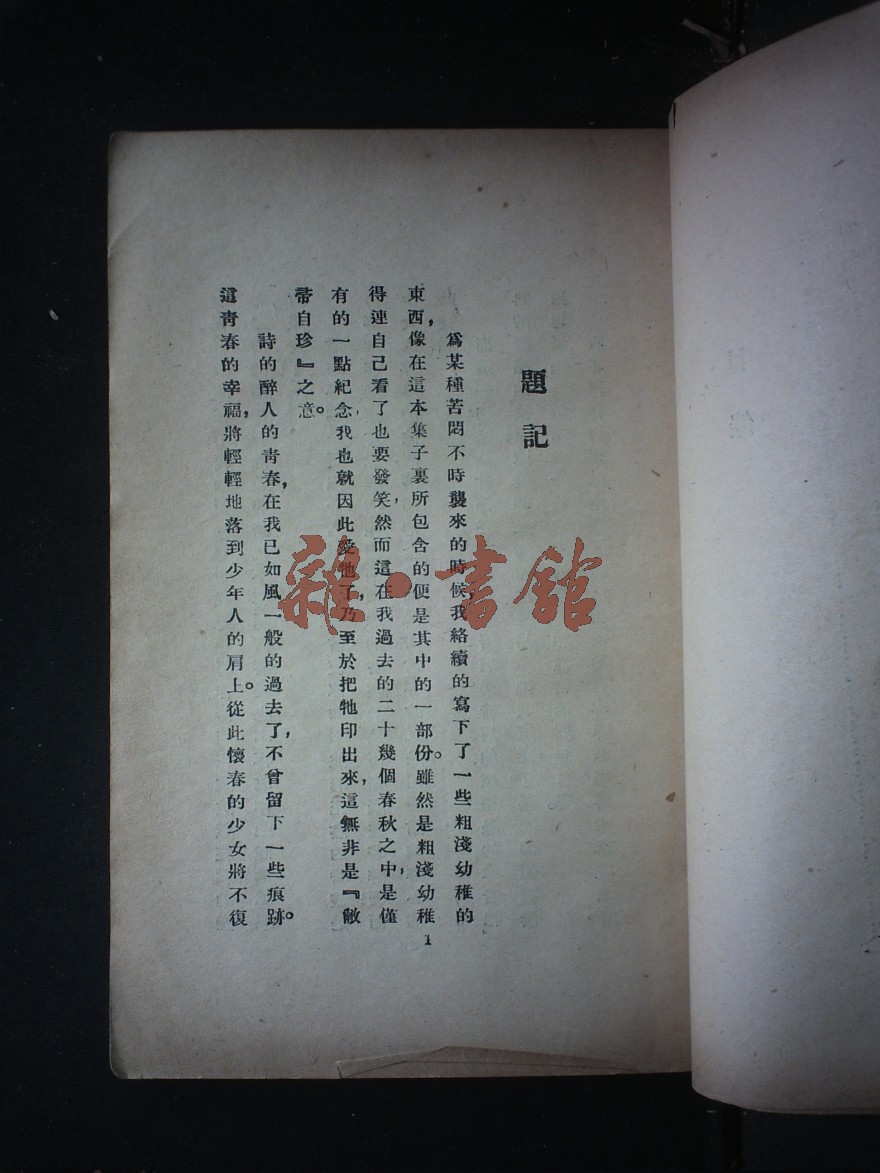 題記
爲某種苦悶不時襲來的時候，我絡續的寫下了一些粗淺幼稚的
東西，像在這本集子裏所包含的便是其中的一部份。雖然是粗淺幼稚
得連自己看了也要發笑，然而這在我過去的二十幾個春秋之中，是僅
有的一點紀念，我也就因此愛牠了，乃至於把牠印出來，這無非是『敝
帚自珍』之意。
詩的醉人的青春，在我已如風一般的過去了，不曾留下一些痕跡。
這青春的幸福，將輕輕地落到少年人的肩上。從此懷春的少女將不復
1
雜·書館